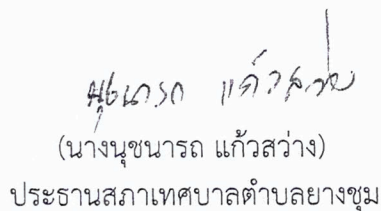 นุชนารถ แก้วสว่าง
(นางนุชนารถ แก้วสว่าง)
ประธานสภาเทศบาลตำบลยางชุม